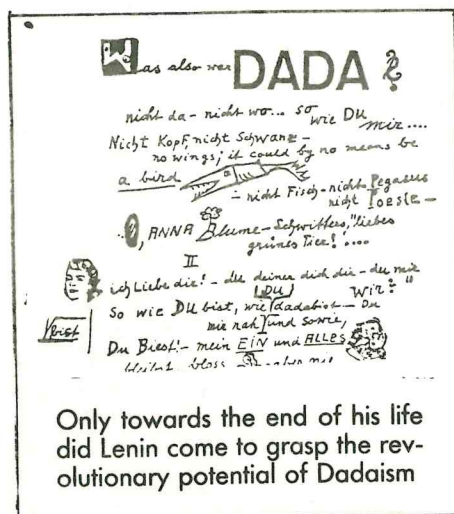 Was also war DADA?
nicht da - nicht wo... so wie DU mir....
Nicht Kopf, nicht Schwanz -
no wings; it could by no means be
a bird
- nicht Fisch - nicht Pegasus
nicht Poesie -
O, ANNA Blume - Schwitters, "liebes
grünes Tier!....
II
ich Liebe dir! - du deiner dich dir - du mir
(DU) Wir? "
So wie DU bist, wie dadabist - Du
mir nah und sowie,
bist
Du Biest! - mein EIN und ALLES
bleibst bloss
Only towards the end of his life
did Lenin come to grasp the rev-
olutionary potential of Dadaism